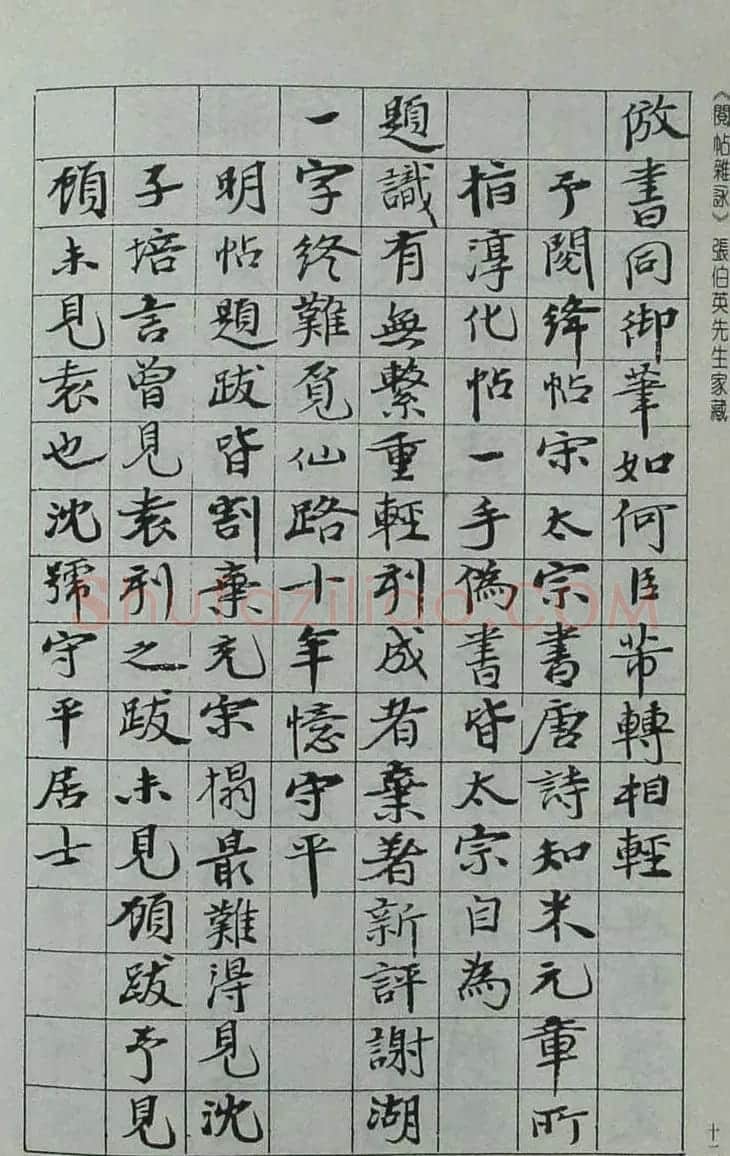 《閱帖雜詠》張伯英先生家藏
倣書同御筆如何臣芾轉相輕
予閱絳帖宋太宗書唐詩知米元章所
指淳化帖一手偽書皆太宗自為
題識有無繫重輕刊成者棄著新評謝湖
一字終難覓仙路十年憶守平
明帖題跋皆割棄充宋搨最難得見沈
子培言曾見袁刊之跋未見顧跋予見
顧未見袁也沈號守平居士
十一
Shufaziliao.COM